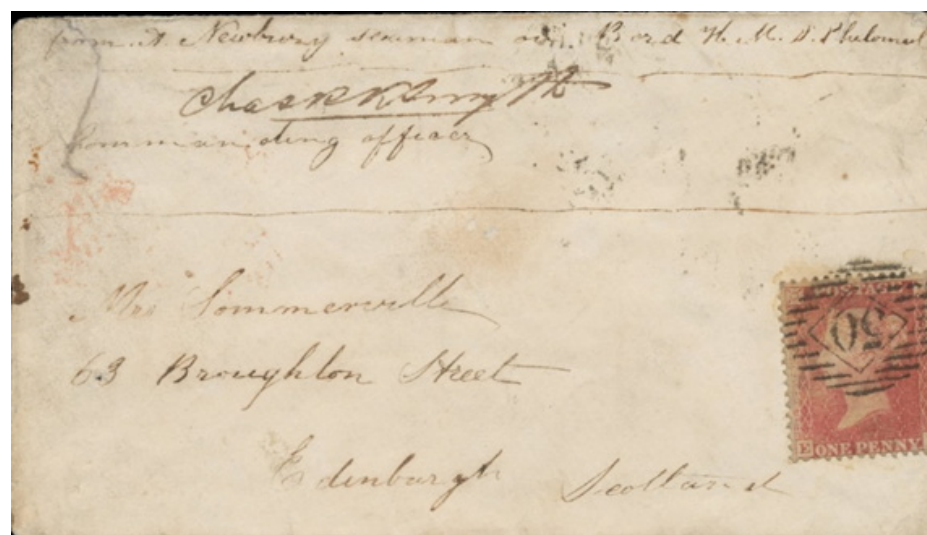 from A. Newbury seaman on Bord H. M. S. Philomel
Commanding officer
Mrs Sommerville
63 Broughton Street
Edinburgh Scotland
POSTAGE
50
E ONE PENNY